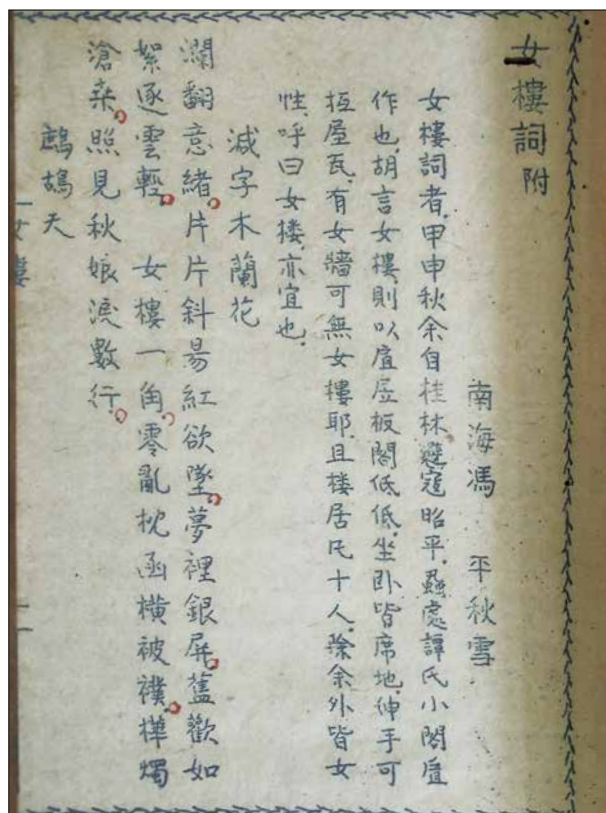 女樓詞附
南海馮 平秋雪
女樓詞者，甲申秋余自桂林避寇昭平，蝨處譚氏小閣虛
作也，胡言女樓，則以虛居板閣低低，坐卧皆席地，伸手可
抵屋瓦，有女牆可無女樓耶，且楼居凡十人，除余外皆女
性，呼曰女楼，亦宜也，
減字木蘭花
瀾翻意緒。片片斜昜紅欲墜。夢裡銀屏。舊歡如
絮逐雲輕。 女樓一角。零亂枕函横被襆。樺燭
滄桒。照見秋娘淚數行。
鷓鴣天
女樓